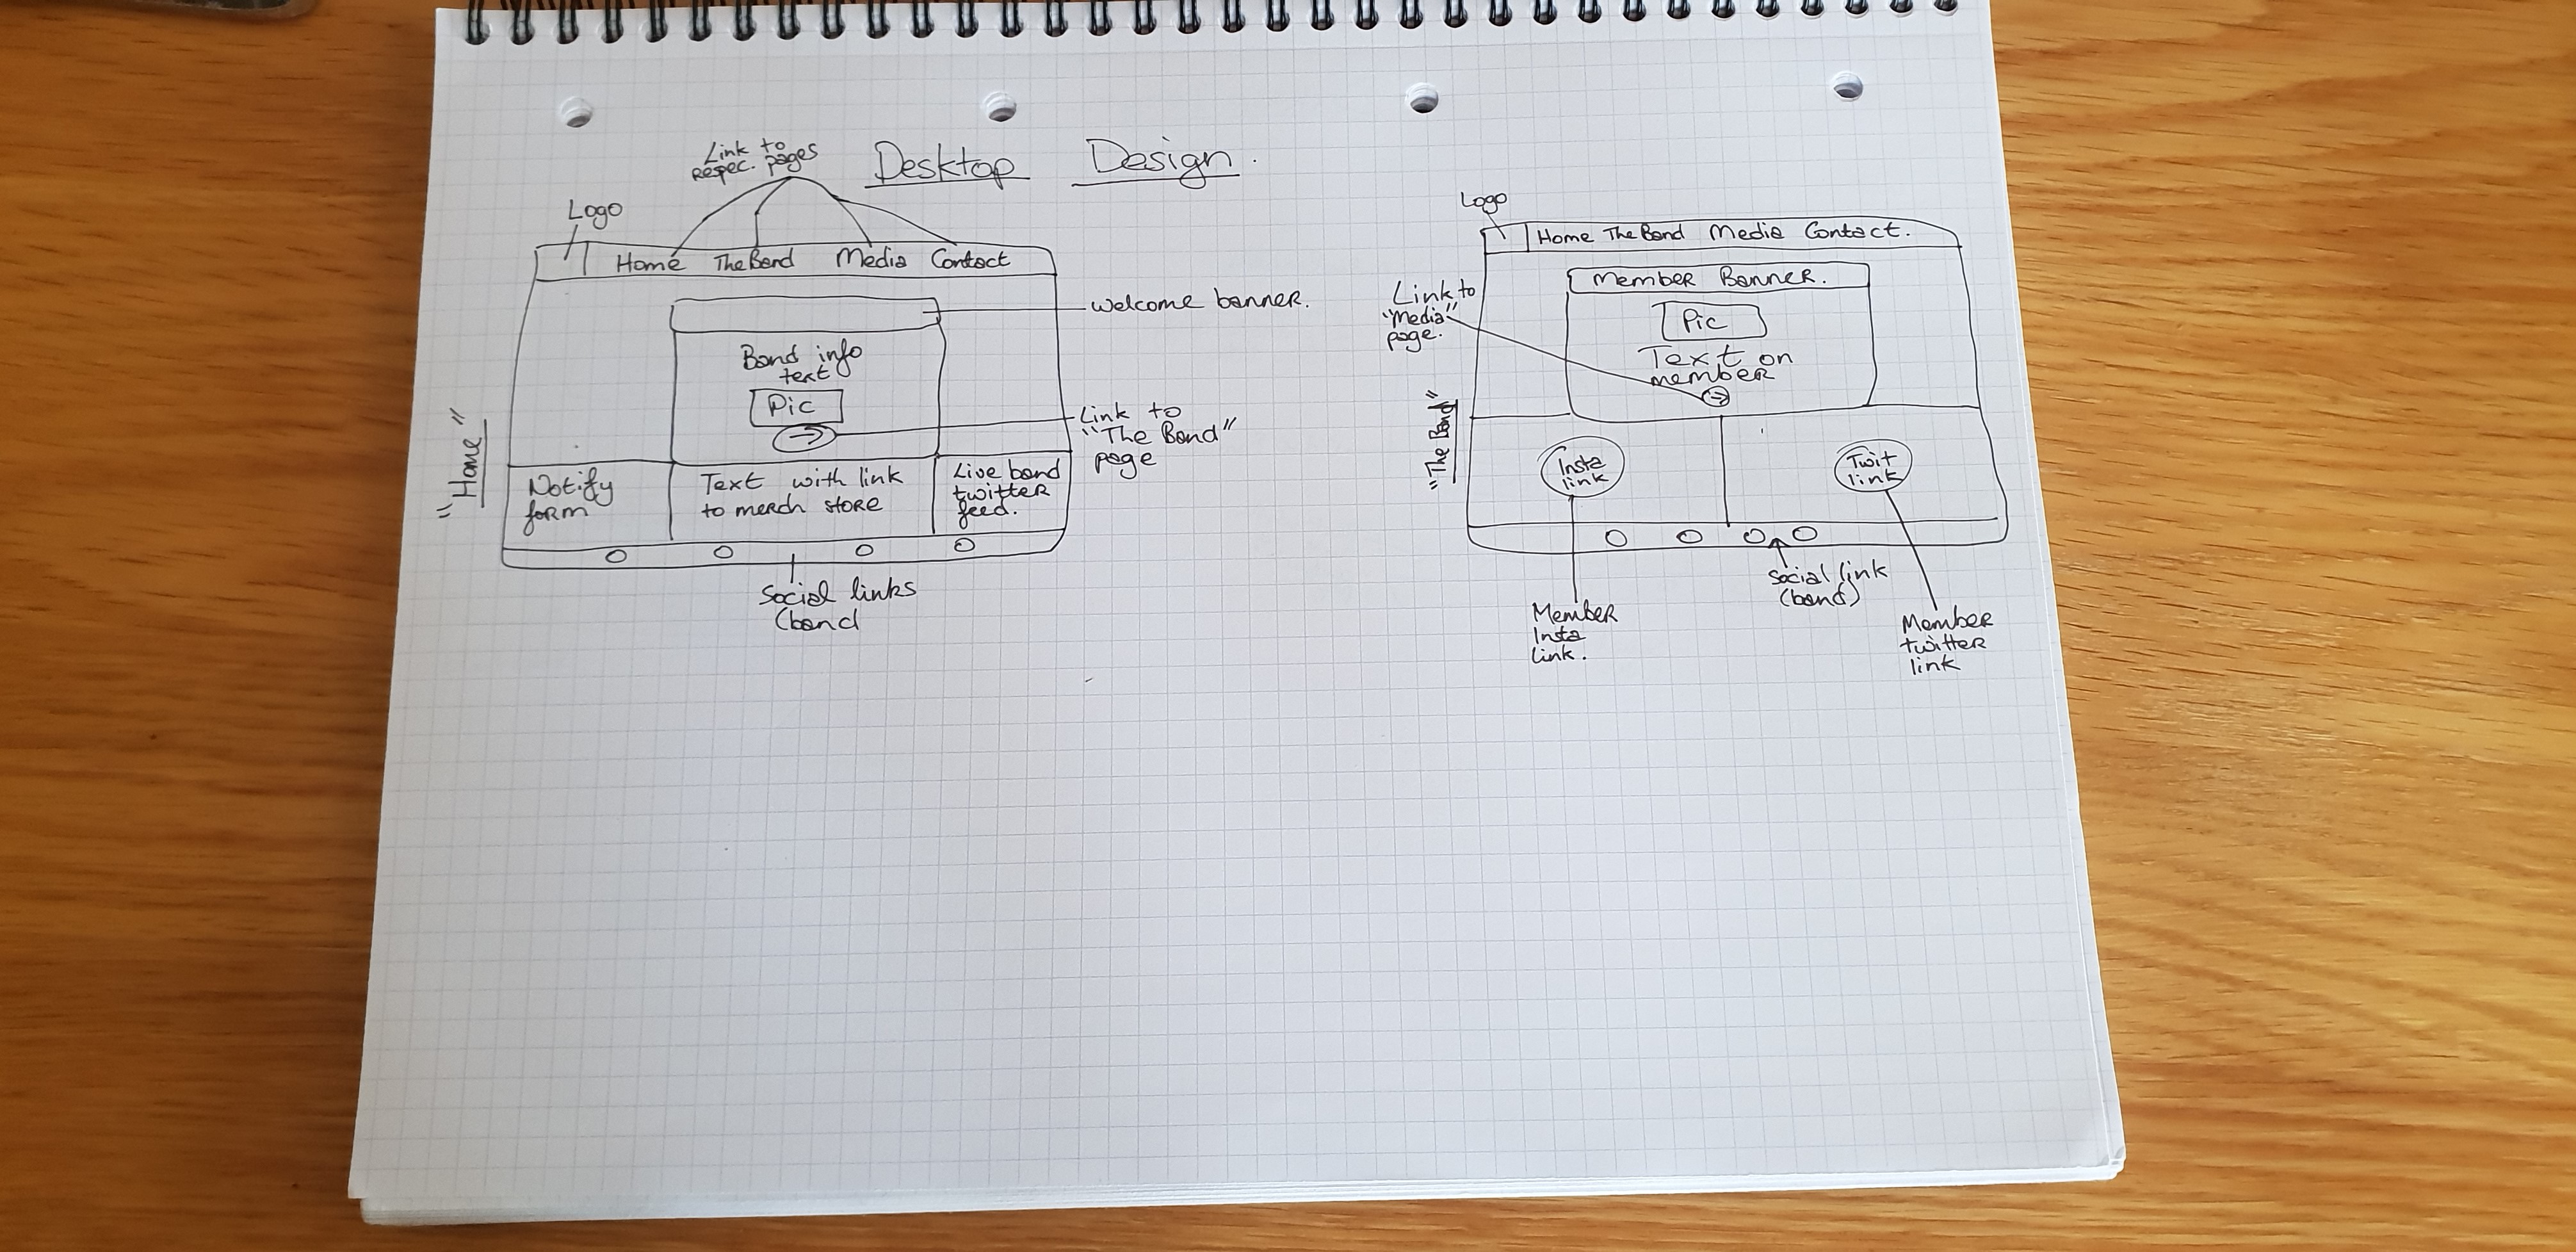 Desktop Design.
Link to
respec. pages
Logo
Home The Band Media Contact
Welcome banner.
Band info
text
Pic
Link to
"The Band"
page
"Home"
Notify
form
Text with link
to merch store
Live band
twitter
feed.
Social links
(band
Logo
Home The Band Media Contact.
Member Banner.
Link to
"Media"
page.
Pic
Text on
member
"The Band"
Insta
link
Twit
link
Social link
(band)
Member
Insta
link.
Member
twitter
link